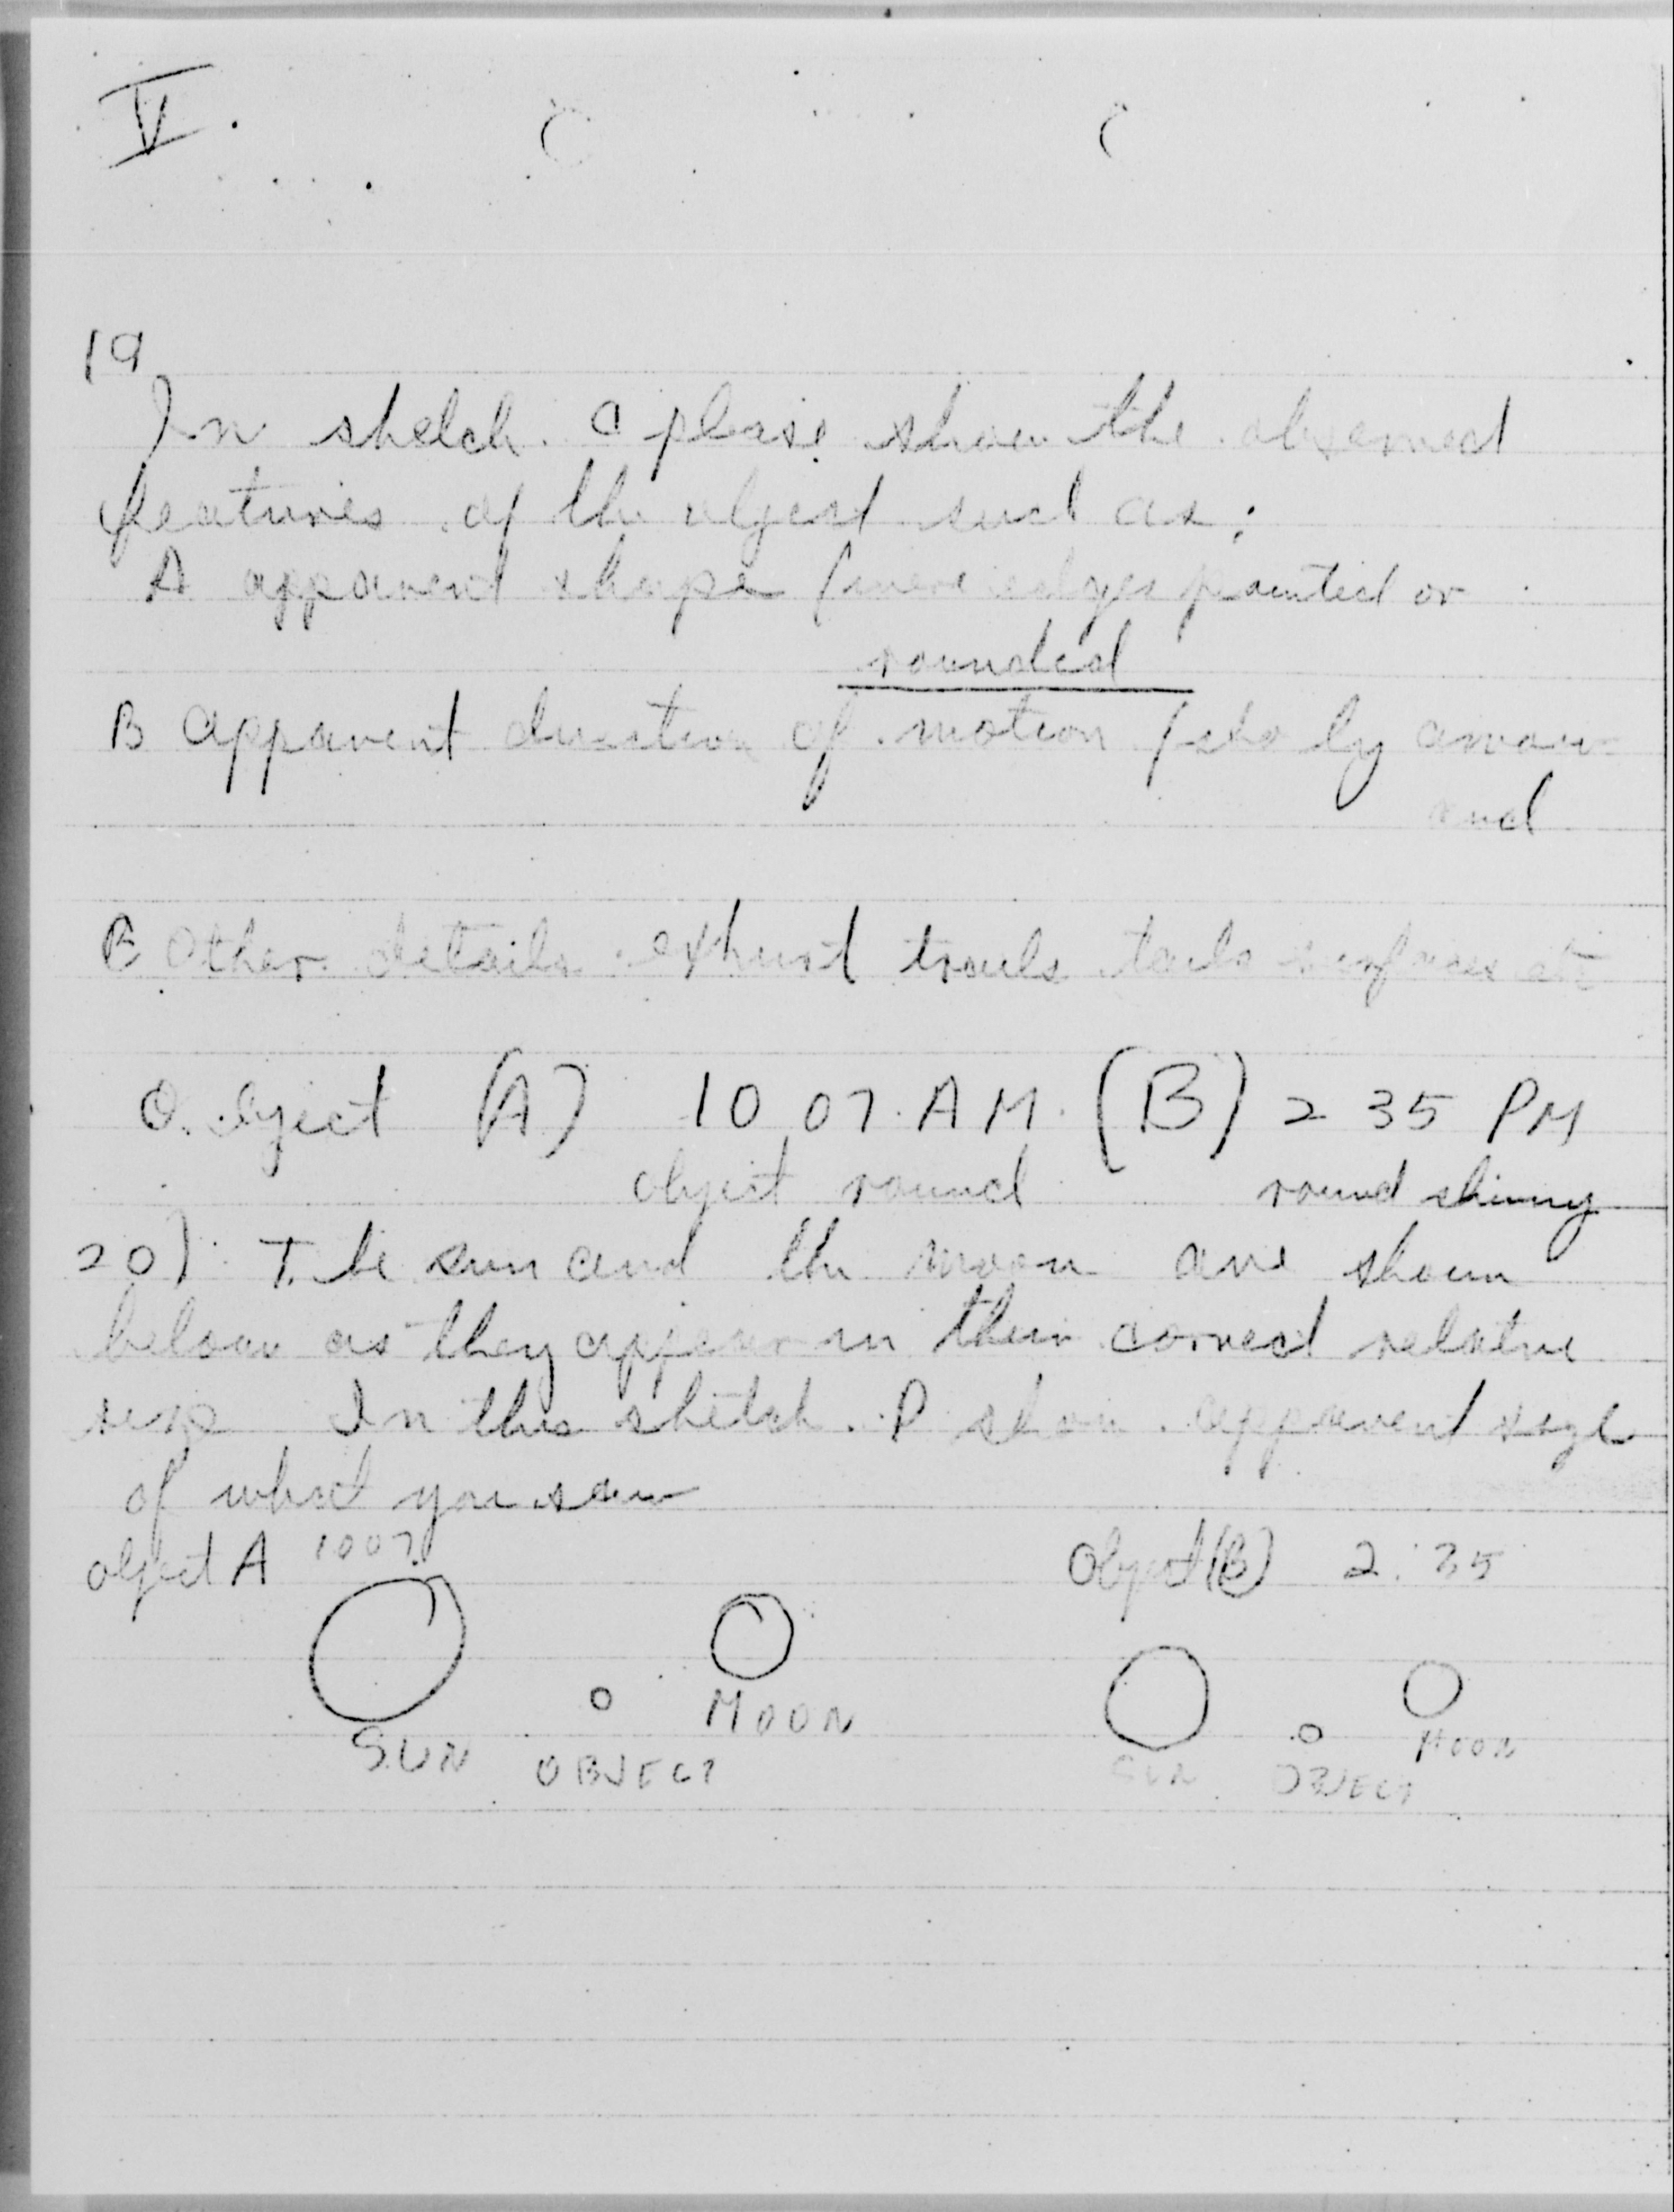 V.
19
In sketch C please show the observed
features of the object such as:
A apparent shape (were edges pointed or
rounded
B apparent direction of motion (sho by arrow
and
C Other details exhust trails tails surfaces etc
Object (A) 10 07 AM (B) 2 35 PM
object round round shinny
20) The sun and the moon are shown
below as they appear in their correct relative
In this sketch. P show apparent size
of what you saw
object A 1007 Object (B) 2:35
MOON
SUN OBJECT
MOON
SUN OBJECT